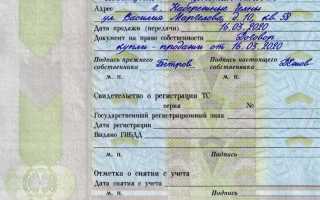 Адрес г. Набережные Челны
ул. Василия Маргелова, д. 10, кв. 58
Дата продажи (передачи) 16.03.2020
Документ на право собственности Договор
купли - продажи от 16.03.2020
Подпись прежнего собственника Петров Подпись настоящего собственника
М. П. М. П.
Свидетельство о регистрации ТС
серия №
Государственный регистрационный знак
Дата регистрации
Выдано ГИБДД
М. П. Подпись
Отметка о снятии с учета
Дата снятия с учета
М. П. Подпись